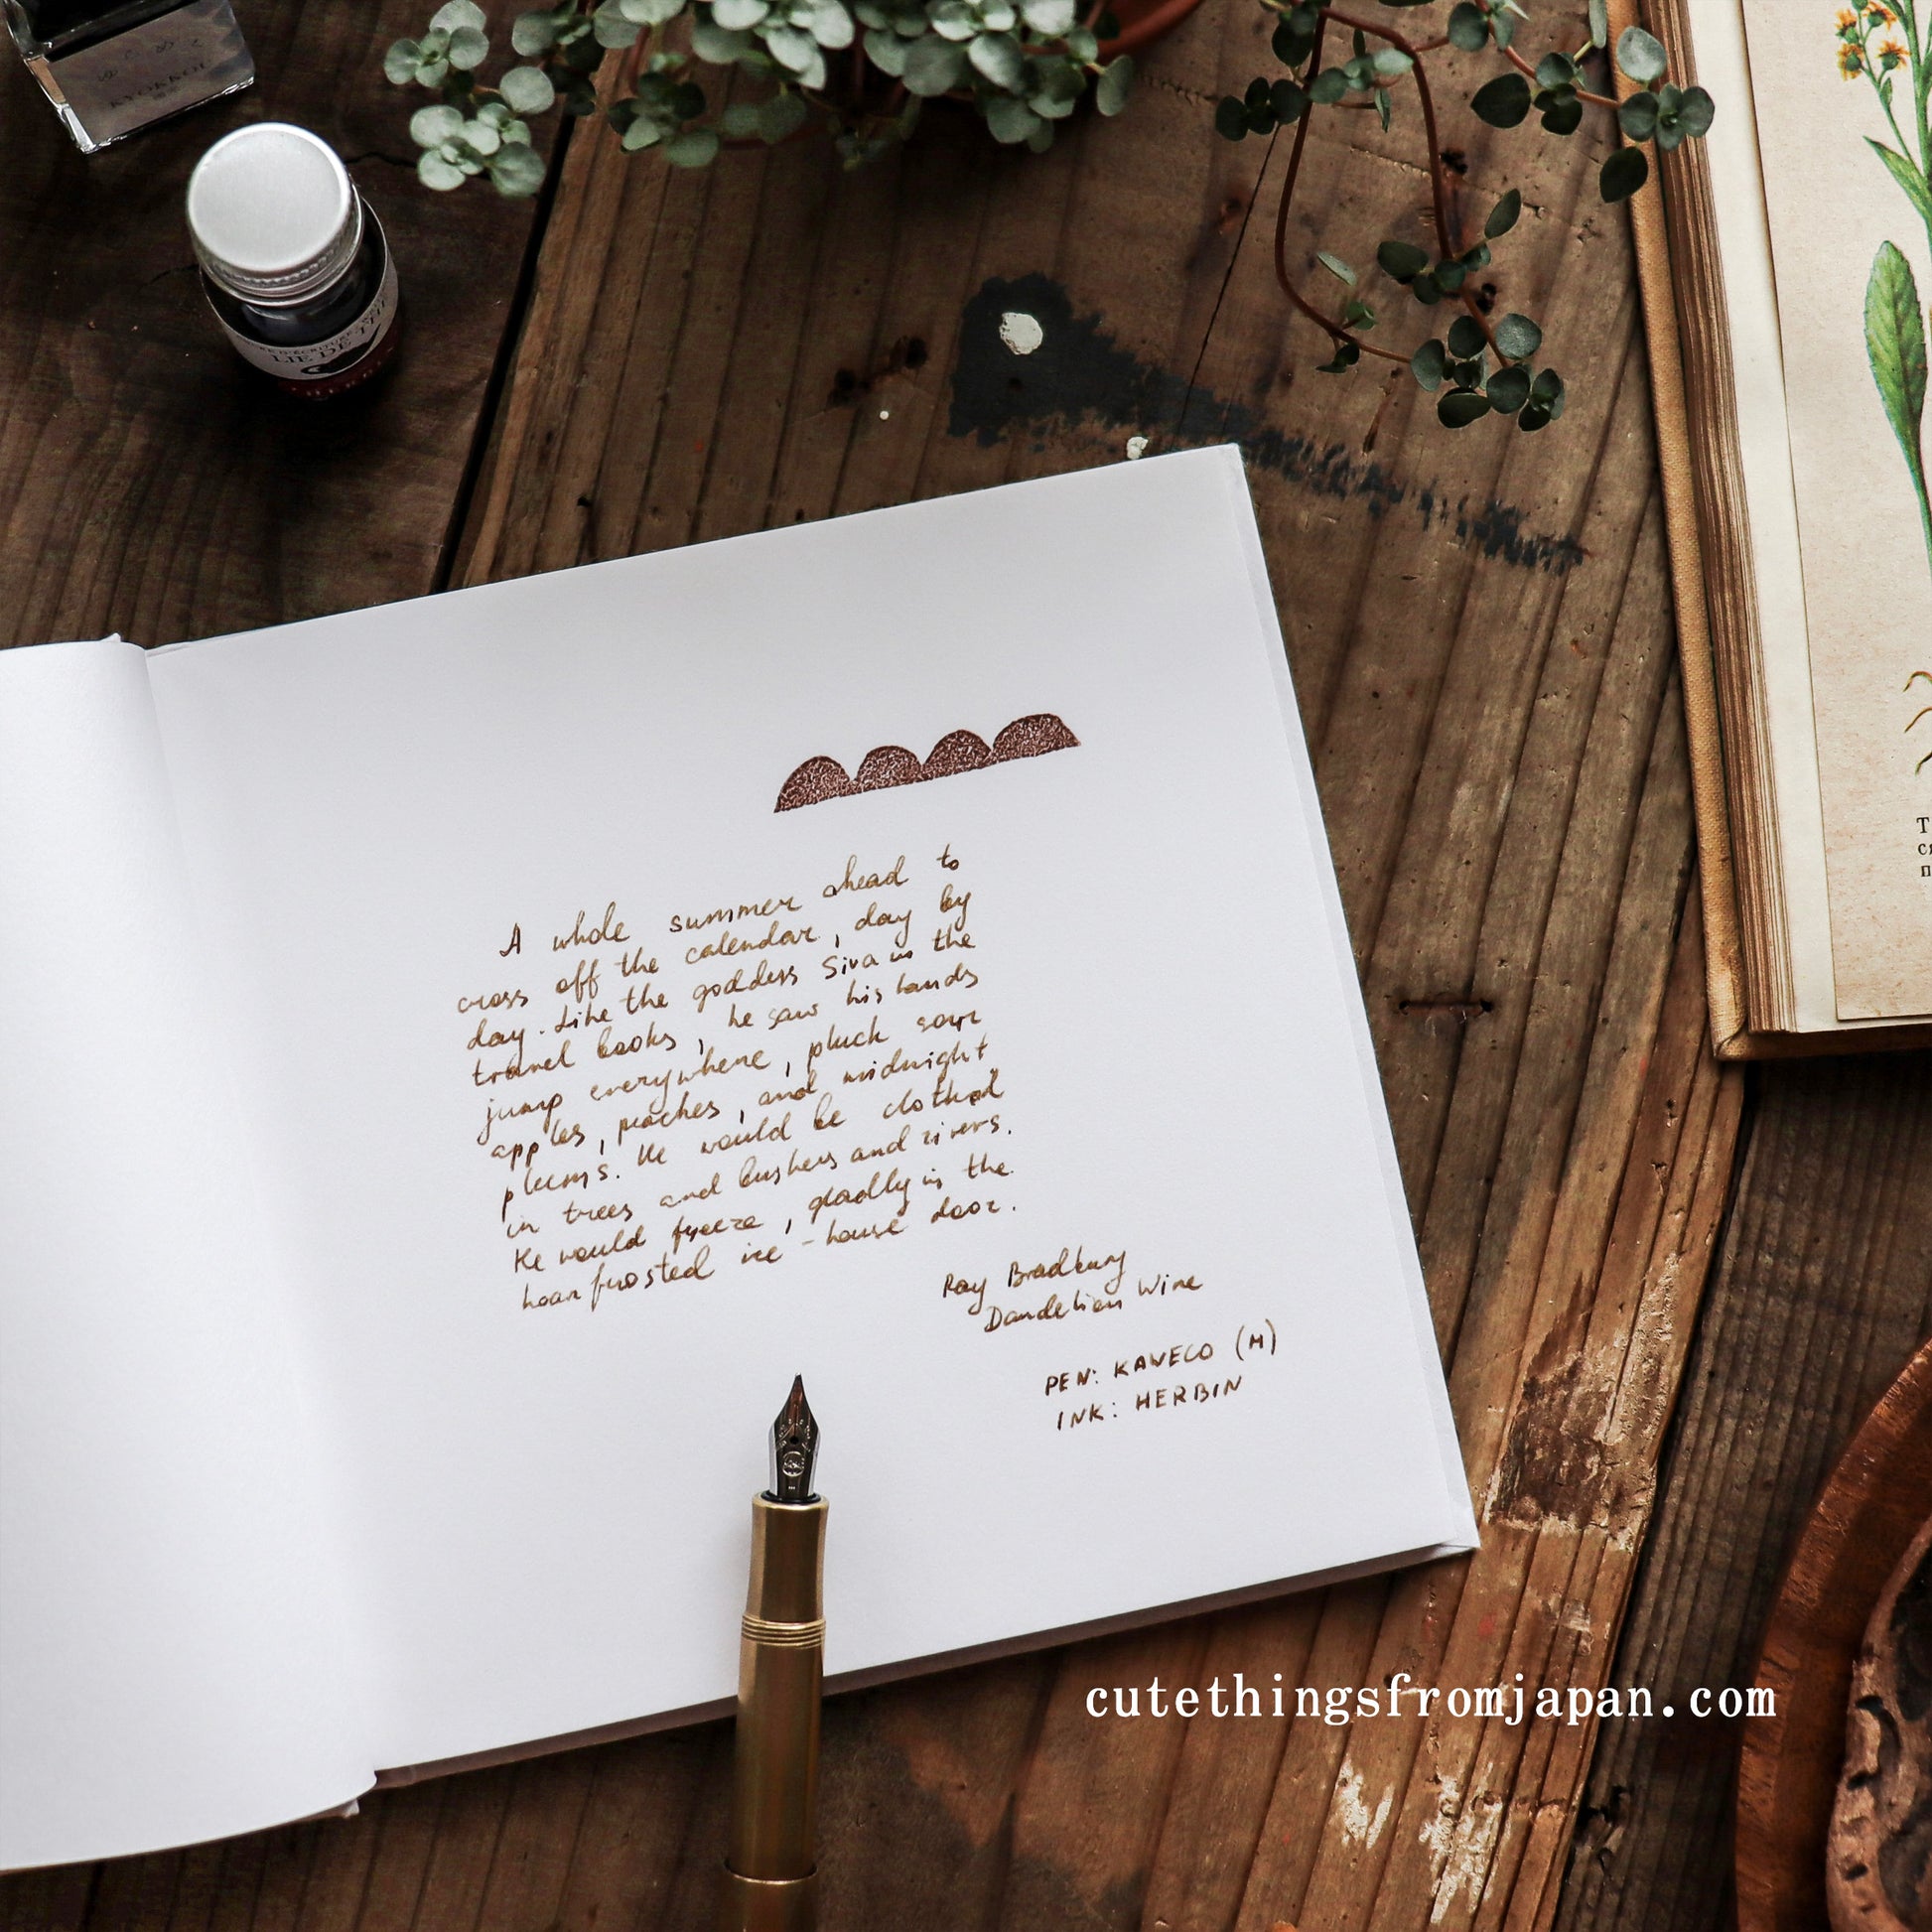 KYOKKOU
LIE DE
A whole summer ahead to
cross off the calendar, day by
day. Like the goddess Siva in the
travel books, he saw his hands
jump everywhere, pluck sour
apples, peaches, and midnight
plums. He would be clothed
in trees and bushes and rivers.
He would freeze, gladly in the
hoarfrosted ice-house door.
Ray Bradbury
Dandelion Wine
PEN: KAWECO (M)
INK: HERBIN
cutethingsfromjapan.com